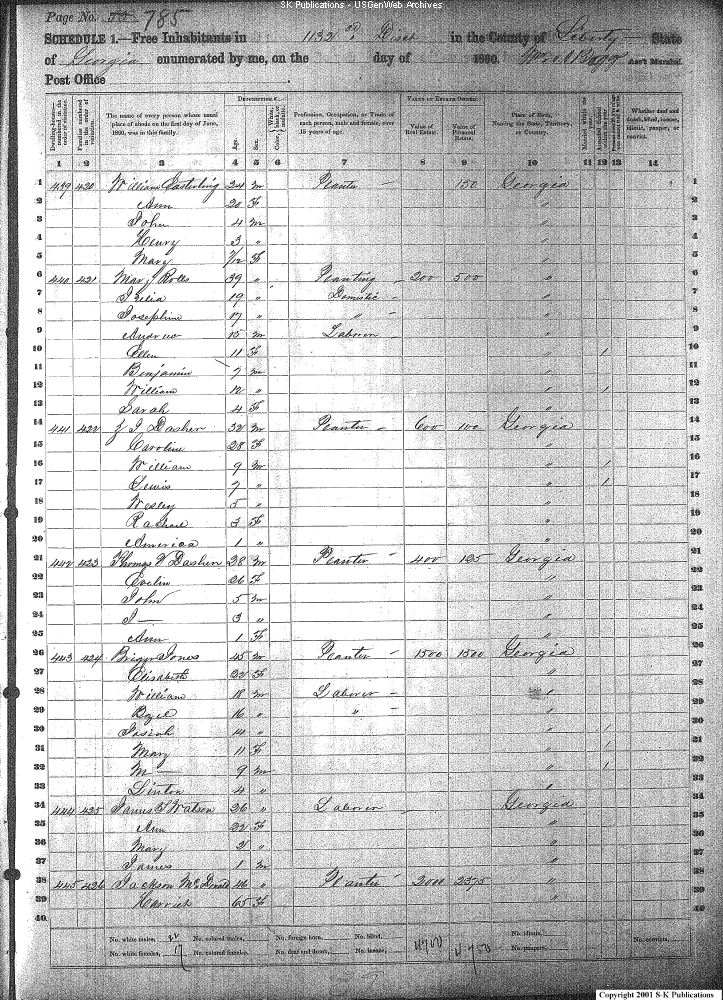 SK Publications - USGenWeb Archives
Page No. 785
SCHEDULE 1.—Free Inhabitants in 1132 Dist in the County of Liberty State
of Georgia enumerated by me, on the day of 1860. Ass't Marshal.
Post Office
Dwelling-houses—numbered in the order of visitation.
Families numbered in the order of visitation.
The name of every person whose usual place of abode on the first day of June, 1860, was in this family.
DESCRIPTION.
Age.
Sex.
Color, White, black, or mulatto.
Profession, Occupation, or Trade of each person, male and female, over 15 years of age.
VALUE OF ESTATE OWNED.
Value of Real Estate.
Value of Personal Estate.
Place of Birth, Naming the State, Territory, or Country.
Married within the year.
Attended School within the year.
Whether deaf and dumb, blind, insane, idiotic, pauper, or convict.
1 2 3 4 5 6 7 8 9 10 11 12 13 14
1 439 420 William Easterling 24 m Planter 150 Georgia 1
2 Ann 20 F " 2
3 John 4 m " 3
4 Henry 3 " " 4
5 Mary 7/12 F " 5
6 440 421 Mary Rolls 39 " Planting 200 500 " 6
7 19 " Domestic " 7
8 Josephine 17 " " " 8
9 Andrew 15 m Laborer " 9
10 Ellen 11 F " / 10
11 Benjamin 7 m " 11
12 William 12 " " / 12
13 Sarah 4 F " 13
14 441 422 Dasher 32 m Planter 600 100 Georgia 14
15 Caroline 28 F " 15
16 William 9 m " / 16
17 Lewis 7 " " / 17
18 Wesley 5 " " 18
19 Rachael 3 F " 19
20 America 1 " " 20
21 442 423 Thomas Dasher 28 m Planter 400 125 Georgia 21
22 Evelin 26 F " 22
23 John 5 m " 23
24 J— 3 " " 24
25 Ann 1 F " 25
26 443 424 Jones 45 m Planter 1500 1500 Georgia 26
27 Elisabeth 32 F " 27
28 William 18 m Laborer " 28
29 16 " " " 29
30 Josiah 14 " " / 30
31 Mary 11 F " / 31
32 M— 9 m " / 32
33 Linton 4 " " 33
34 444 425 James Watson 26 " Laborer Georgia 34
35 Ann 22 F " 35
36 Mary 2 " " 36
37 James 1 m " 37
38 445 426 Jackson McDonald 46 " Planter 2000 2375 " 38
39 Harriet 65 F " 39
40 40
No. white males, 22 No. colored males, No. foreign born, No. blind, No. idiotic, No. convicts,
No. white females, 17 No. colored females, No. deaf and dumb, No. insane, 4700 4750 No. paupers,
Copyright 2001 S-K Publications